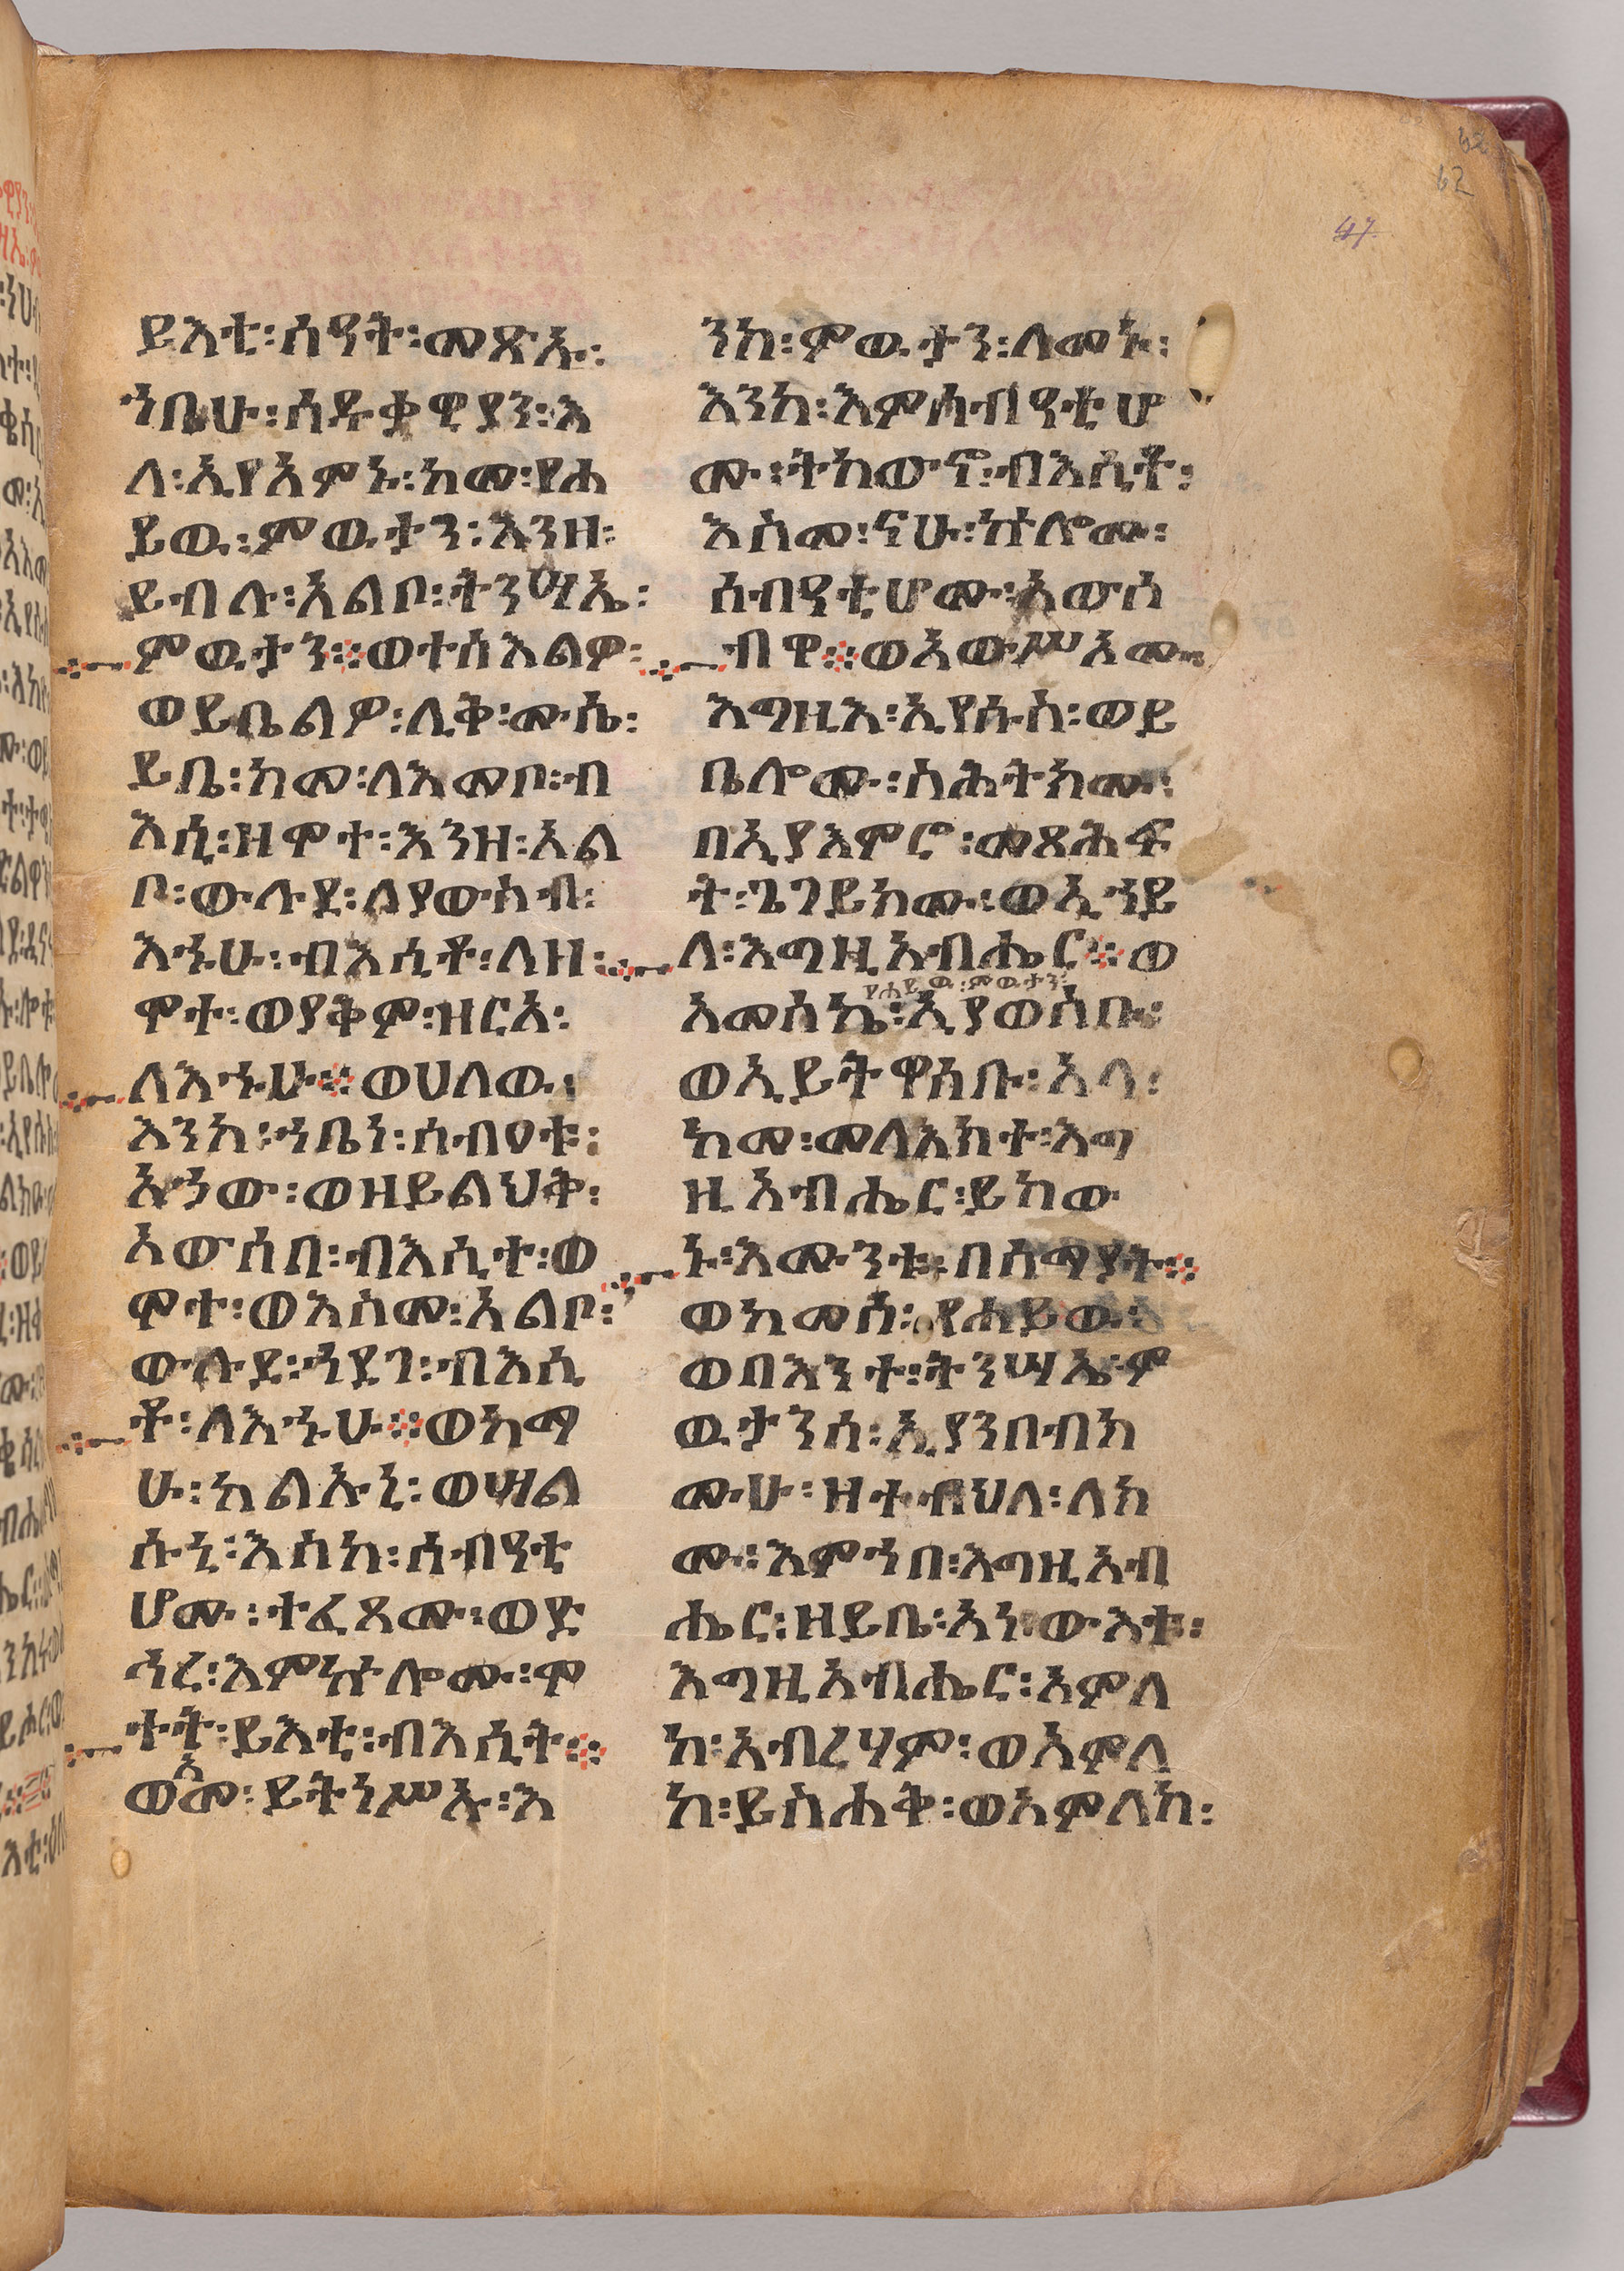 62
62
47
ይእቲ፡ሰዓት፡መጽኡ፡
ኀቤሁ፡ሰዱቃዊያን፡እ
ለ፡ኢየአምኑ፡ከመ፡የሐ
ይዉ፡ምዉታን፡እንዘ፡
ይብሉ፡አልቦ፡ትንሣኤ፡
ምዉታን፨ወተስእልዎ፡
ወይቤልዎ፡ሊቅ፡ሙሴ፡
ይቤ፡ከመ፡ለእመቦ፡ብ
እሲ፡ዘሞተ፡እንዘ፡አል
ቦ፡ውሉደ፡ለያውስብ፡
እኁሁ፡ብእሲቶ፡ለዘ፡
ሞተ፡ወያቅም፡ዝርአ፡
ለእኁሁ፨ወሀለዉ፡
እንከ፡ኀቤነ፡ሰብዐቱ፡
አኀው፡ወዘይልህቅ፡
አውሰበ፡ብእሲተ፡ወ
ሞተ፡ወእስመ፡አልቦ፡
ውሉደ፡ኀደገ፡ብእሲ
ቶ፡ለእኁሁ፨ወከማ
ሁ፡ካልኡኒ፡ወሣል
ሱኒ፡እስከ፡ሰብዓቲ
ሆሙ፡ተፈጸሙ፡ወድ
ኅረ፡እምኵሎሙ፡ሞ
ተት፡ይእቲ፡ብእሲት፨
ወአመ፡ይትነሥኡ፡እ
ንከ፡ምዉታን፡ለመኑ፡
እንከ፡እምሰብዓቲሆ
ሙ፡ትከውኖ፡ብእሲቶ፡
እስመ፡ናሁ፡ኵሎሙ፡
ሰብዓቲሆሙ፡አውሰ
ብዋ፨ወአውሥአሙ፡
እግዚእ፡ኢየሱስ፡ወይ
ቤሎሙ፡ስሕትክሙ፡
በኢያእምሮ፡መጻሕፍ
ት፡ጌገይክሙ፡ወኢኀይ
ለ፡እግዚአብሔር፨ወ
የሐይዉ፡ምዉታን፡
አመሰኬ፡ኢያወስቡ፡
ወኢይትዋሰቡ፡አላ፡
ከመ፡መላእክተ፡እግ
ዚአብሔር፡ይከው
ኑ፡እሙንቱ፡በሰማያት፨
ወከመሰ፡የሐይዉ፡
ወበእንተ፡ትንሣኤ፡ም
ዉታንሰ፡ኢያንበብክ
ሙሁ፡ዘተብህለ፡ለክ
ሙ፡እምኀበ፡እግዚአብ
ሔር፡ዘይቤ፡አነ፡ውእቱ፡
እግዚአብሔር፡አምላ
ከ፡አብረሃም፡ወአምላ
ከ፡ይስሐቅ፡ወአምላከ፡